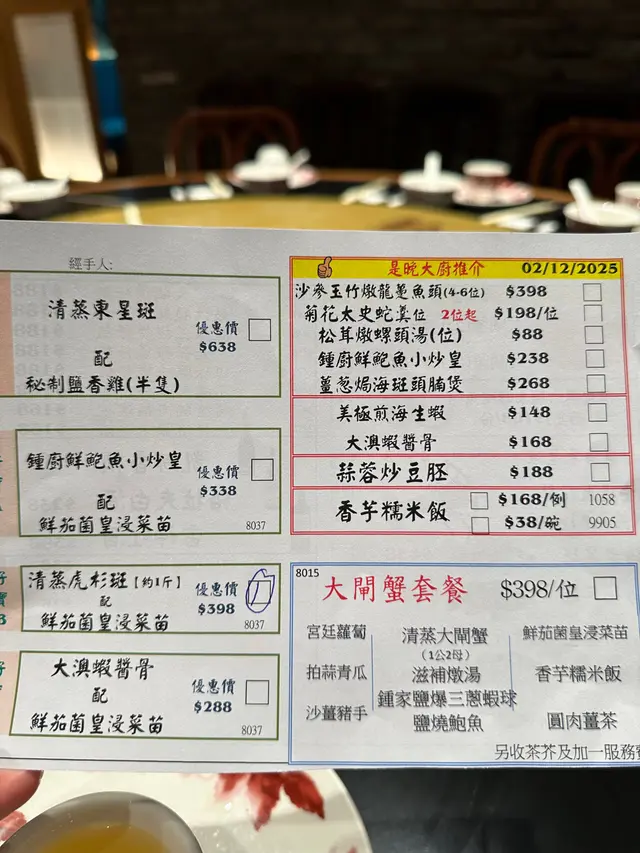 經手人:
清蒸東星斑
配
秘制鹽香雞(半隻)
優惠價
$638
鍾廚鮮鮑魚小炒皇
配
鮮茄菌皇浸菜苗
優惠價
$338
8037
清蒸虎杉斑【約1斤】
配
鮮茄菌皇浸菜苗
優惠價
$398
8037
大澳蝦醬骨
配
鮮茄菌皇浸菜苗
優惠價
$288
8037
是晚大廚推介 02/12/2025
沙參玉竹燉龍躉魚頭(4-6位) $398
菊花太史蛇羹位 2位起 $198/位
松茸燉螺頭湯(位) $88
鍾廚鮮鮑魚小炒皇 $238
薑葱焗海斑頭腩煲 $268
美極煎海生蝦 $148
大澳蝦醬骨 $168
蒜蓉炒豆胚 $188
香芋糯米飯 $168/例 1058
$38/碗 9905
8015
大閘蟹套餐 $398/位
宮廷蘿蔔
拍蒜青瓜
沙薑豬手
清蒸大閘蟹
(1公2母)
滋補燉湯
鍾家鹽爆三蔥蝦球
鹽燒鮑魚
鮮茄菌皇浸菜苗
香芋糯米飯
圓肉薑茶
另收茶芥及加一服務